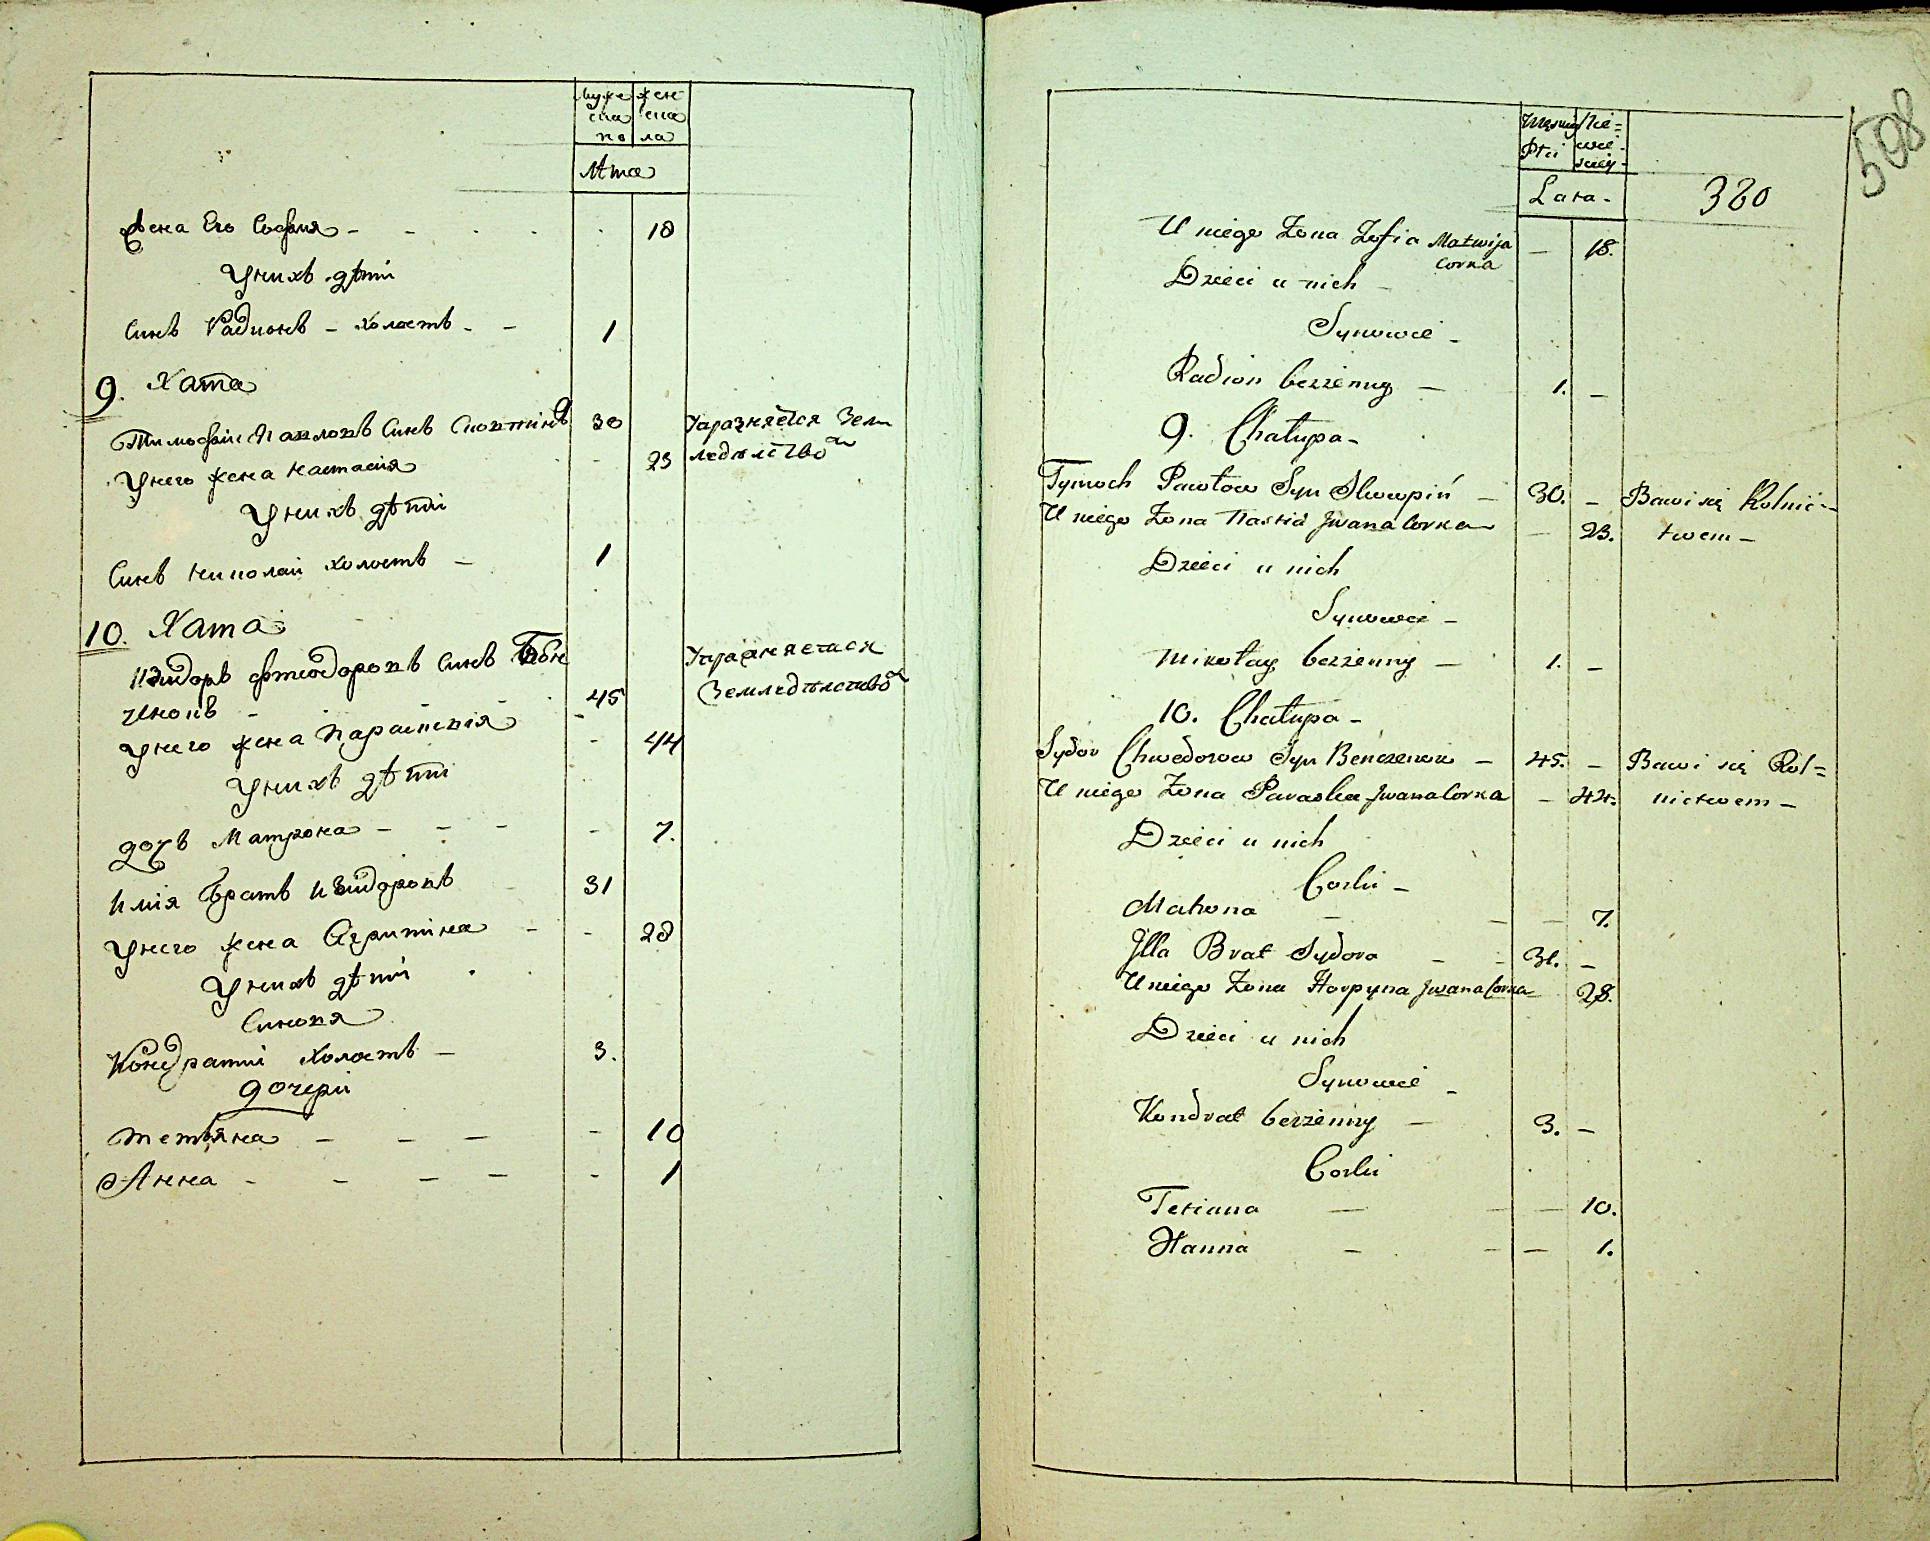 Муже жен
ска ска
по ла
Лѣта
Жена Его Софія - - - - - 18
У нихъ дѣти
Синъ Радионъ - холостъ - - 1
9. Хата
Тимофѣй Павловъ Синъ 30 Упражняется Зем
У него жена Настасія - 23 ледѣлство
У нихъ дѣти
Синъ Николай холостъ - 1
10. Хата
Изидоръ Фтеодоровъ Синъ Упражняется
- 45 Земледѣлство
У него жена Параскивія - 44
У нихъ дѣти
дочъ Матрона - - - - 7.
Илія Братъ Изидоровъ 31
У него жена Агрипина - - 28
У нихъ дѣти
Синовя
Кондратий холостъ - 3.
дочери
Тетьяна - - - - 10
Анна - - - - - 1
598
Męskiey Nie=
Płci wie-
sciey-
Lata- 380
U niego Zona Zofia Matwija — 18.
corka
Dzieci u nich -
Synowie -
Radion bezzenny — 1. —
9. Chałupa -
Tymoch Pawłow Syn Słowpiń — 30. — Bawi się Rolnic=
U niego Zona Nastia Jwana Corka — 23. twem -
Dzieci u nich
Synowie -
Mikołay bezzenny — 1. —
10. Chałupa -
Sydor Chwedorow Syn Benczenow — 45. — Bawi się Rol=
U niego Zona Paraska Jwana Corka — 44. nictwem -
Dzieci u nich
Corki -
Matrona — — — 7.
Jlla Brat Sydora — - 31. —
U niego Zona Horpyna Jwana Corka - 28.
Dzieci u nich
Synowie -
Kondrat bezzenny — 3. —
Corki
Tetiana — — — 10.
Hanna — - — 1.